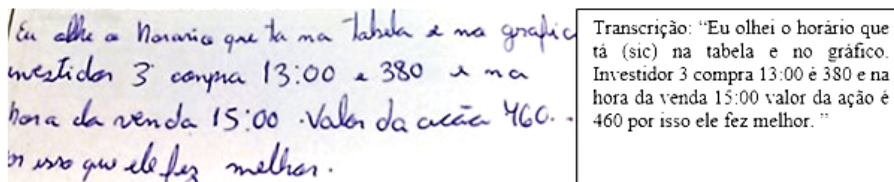 Eu olhe o horario que ta na tabela e no grafic
nvestidor 3 compra 13:00 e 380 e na
hora da venda 15:00. Valor da acão 460.
or isso que ele fez melhor.
Transcrição: “Eu olhei o horário que
tá (sic) na tabela e no gráfico.
Investidor 3 compra 13:00 é 380 e na
hora da venda 15:00 valor da ação é
460 por isso ele fez melhor. ”